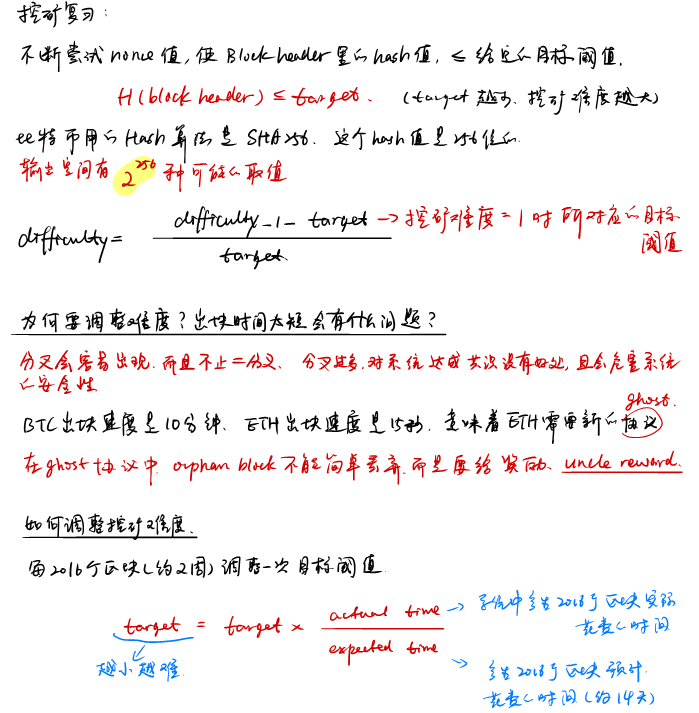 挖矿复习:
不断尝试 nonce 值, 使 Block header 里的 hash 值, ≤ 给定的目标阈值.
H(block header) ≤ target. (target 越小, 挖矿难度越大)
比特币用的 Hash 算法是 SHA256. 这个 hash 值是 256 位的.
输出空间有 2^256 种可能的取值
difficulty = difficulty_1_target / target. → 挖矿难度 = 1 时 所对应的目标
阈值
为何要调整难度? 出块时间太短会有什么问题?
分叉会容易出现. 而且不止二分叉、分叉越多, 对系统达成共识没有好处, 且会危害系统
的安全性
ghost.
BTC 出块速度是10分钟、ETH 出块速度是15秒. 意味着ETH需要新的协议
在 ghost 协议中 orphan block 不能简单丢弃. 而是要给奖励. uncle reward.
如何调整挖矿难度.
每2016个区块(约2周) 调整一次目标阈值
target = target × actual time / expected time
→ 系统中产生2016个区块实际
花费的时间
越小越难.
产生2016个区块预计
花费的时间(约14天)